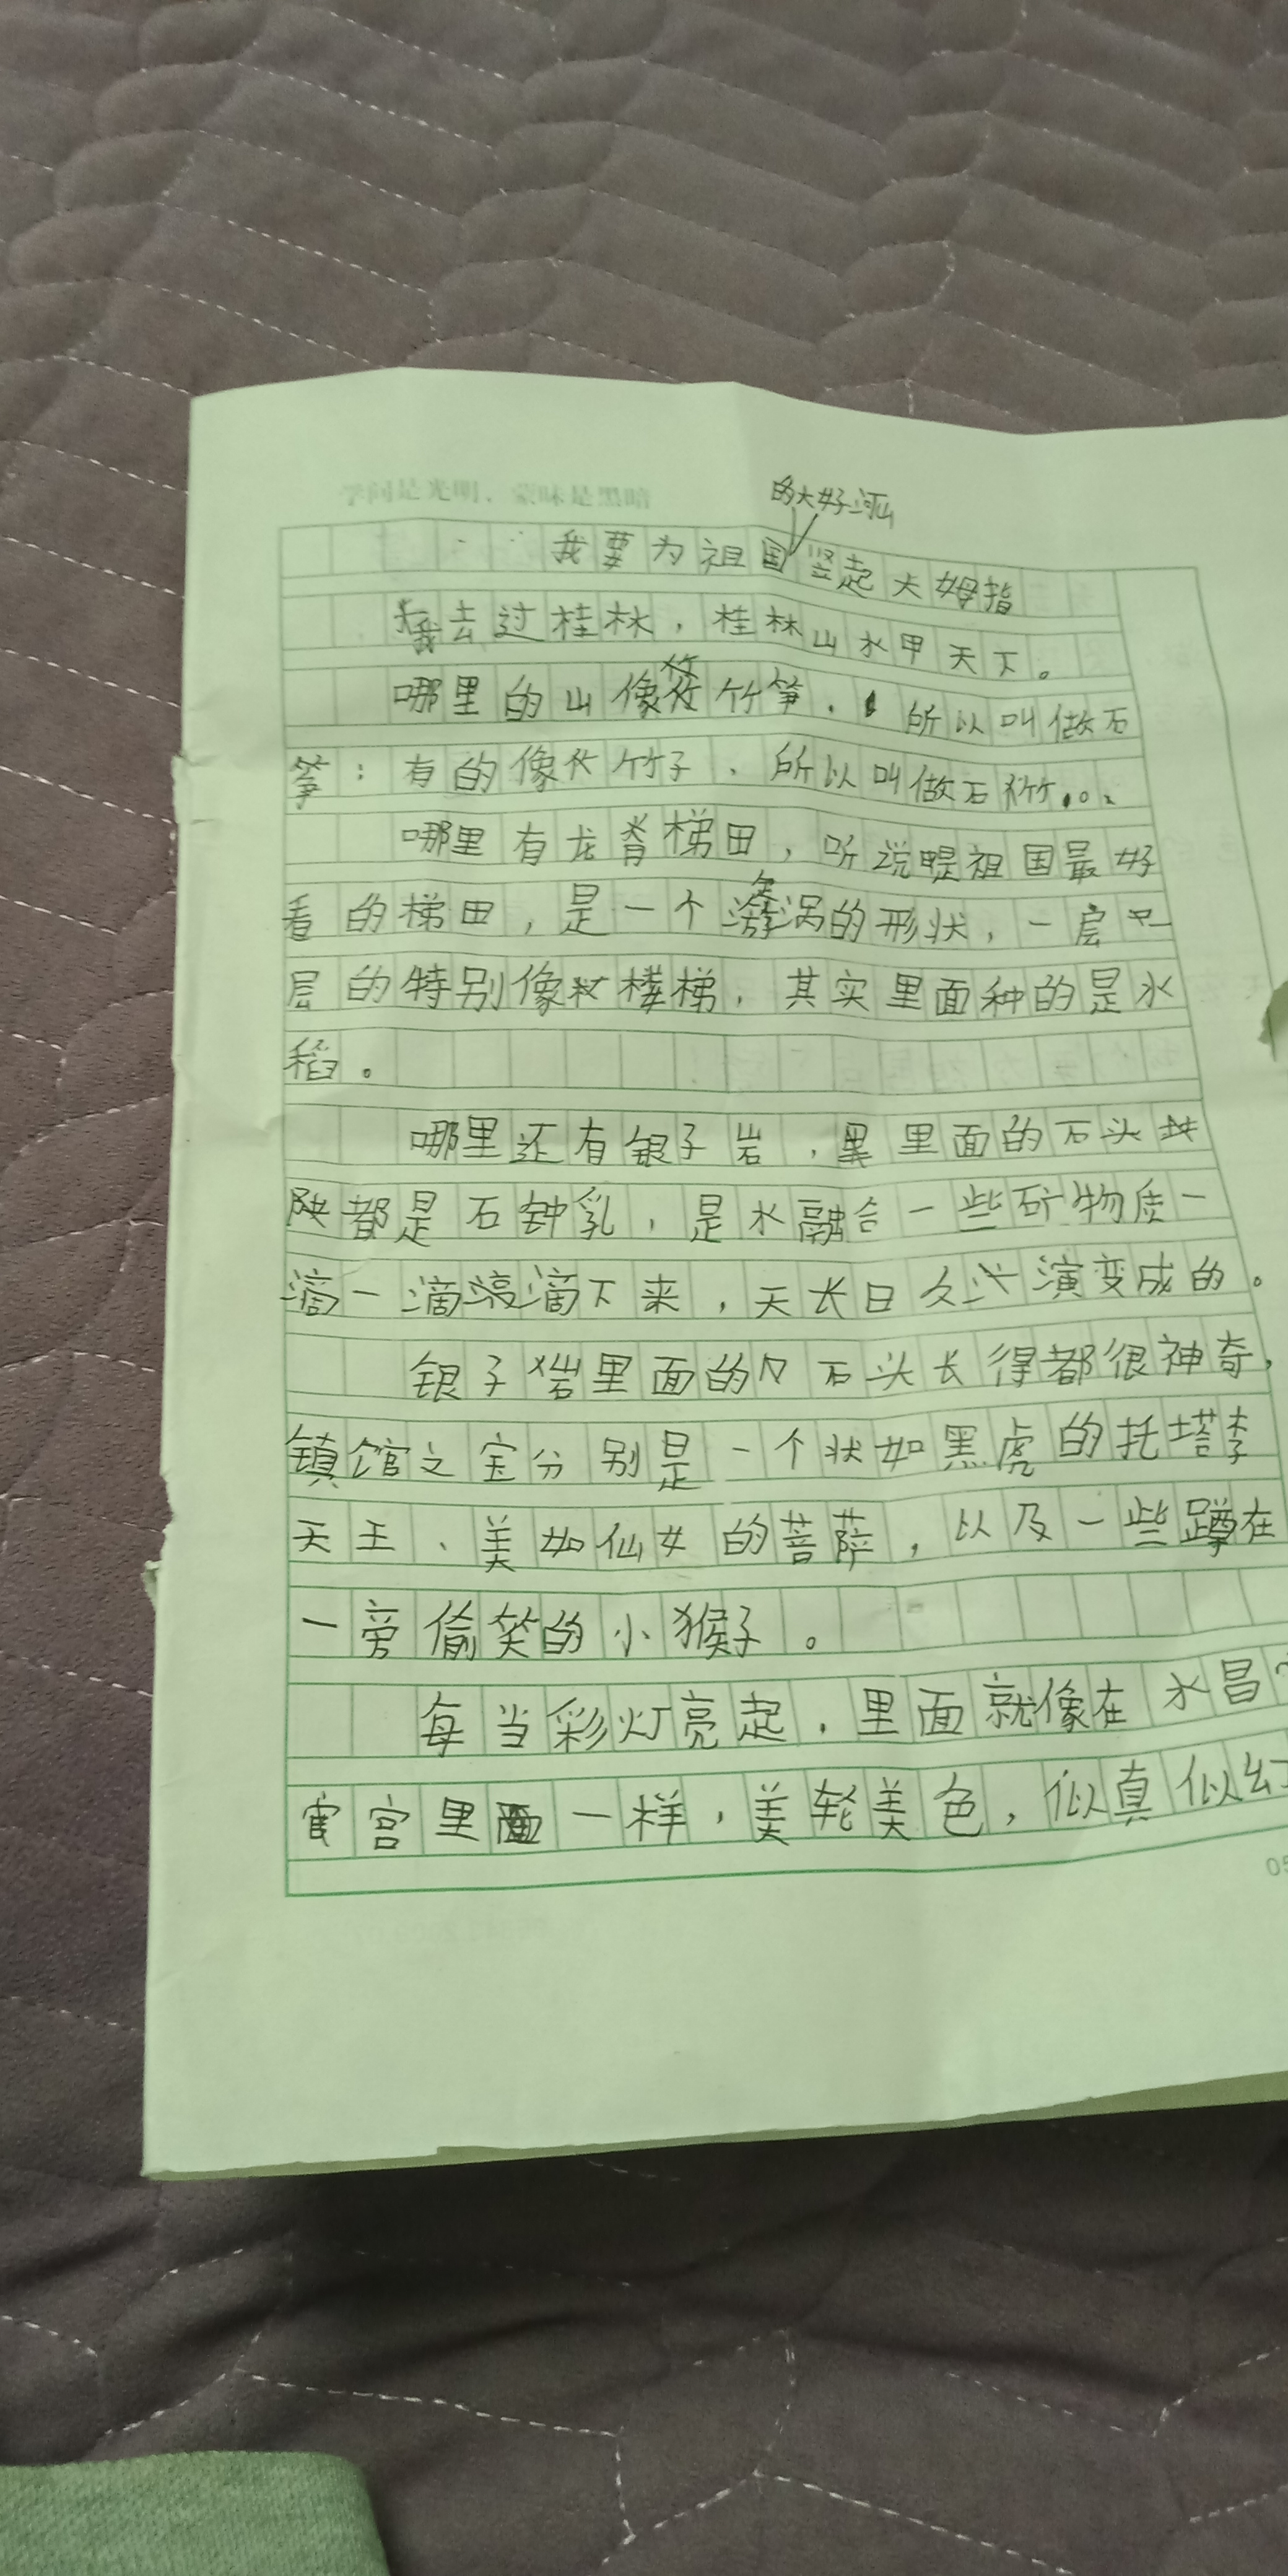 学问是光明，蒙昧是黑暗
的大好河山
我要为祖国竖起大姆指
我去过桂林，桂林山水甲天下。
哪里的山像竹笋，所以叫做石
笋：有的像竹子，所以叫做石竹。
哪里有龙脊梯田，听说是祖国最好
看的梯田，是一个漩涡的形状，一层
层的特别像楼梯，其实里面种的是水
稻。
哪里还有银子岩，里面的石头
都是石钟乳，是水融合一些矿物质一
滴一滴滴下来，天长日久演变成的。
银子岩里面的石头长得都很神奇，
镇馆之宝分别是一个状如黑虎的托塔李
天王、美如仙女的菩萨，以及一些蹲在
一旁偷笑的小猴子。
每当彩灯亮起，里面就像在水昌
宫里面一样，美轮美色，似真似幻
05